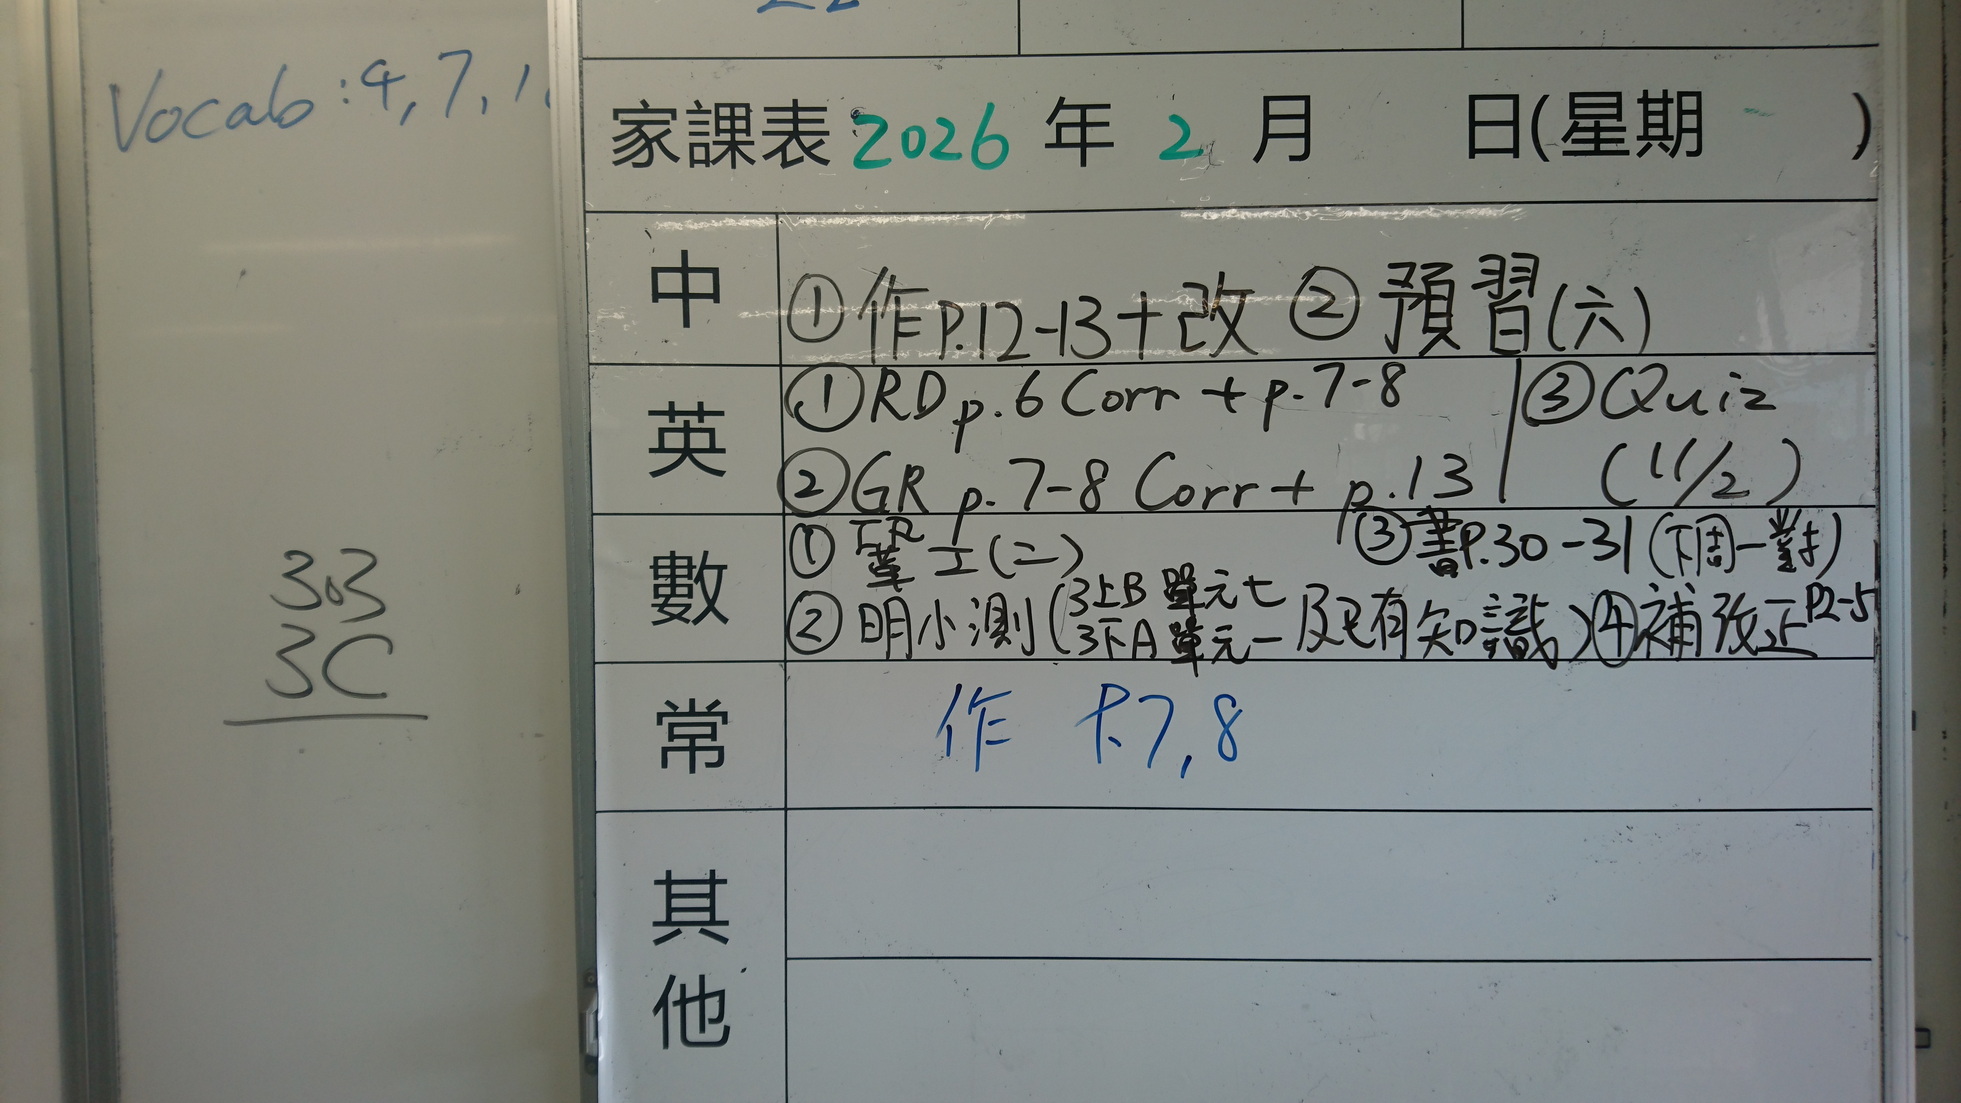 Vocab : 4, 7, 1
家課表 2026 年 2 月 日(星期 )
中 ①作P.12-13+改 ②預習(六)
英 ①RD p.6 Corr + p.7-8 ③Quiz
②GR p.7-8 Corr + p.13 (11/2)
數 ① 工(二) ③書P.30-31(下周一對)
②明小測(3上B單元七 3下A單元一及已有知識)④補改正P2-5
常 作 P.7,8
其他
3B
3C